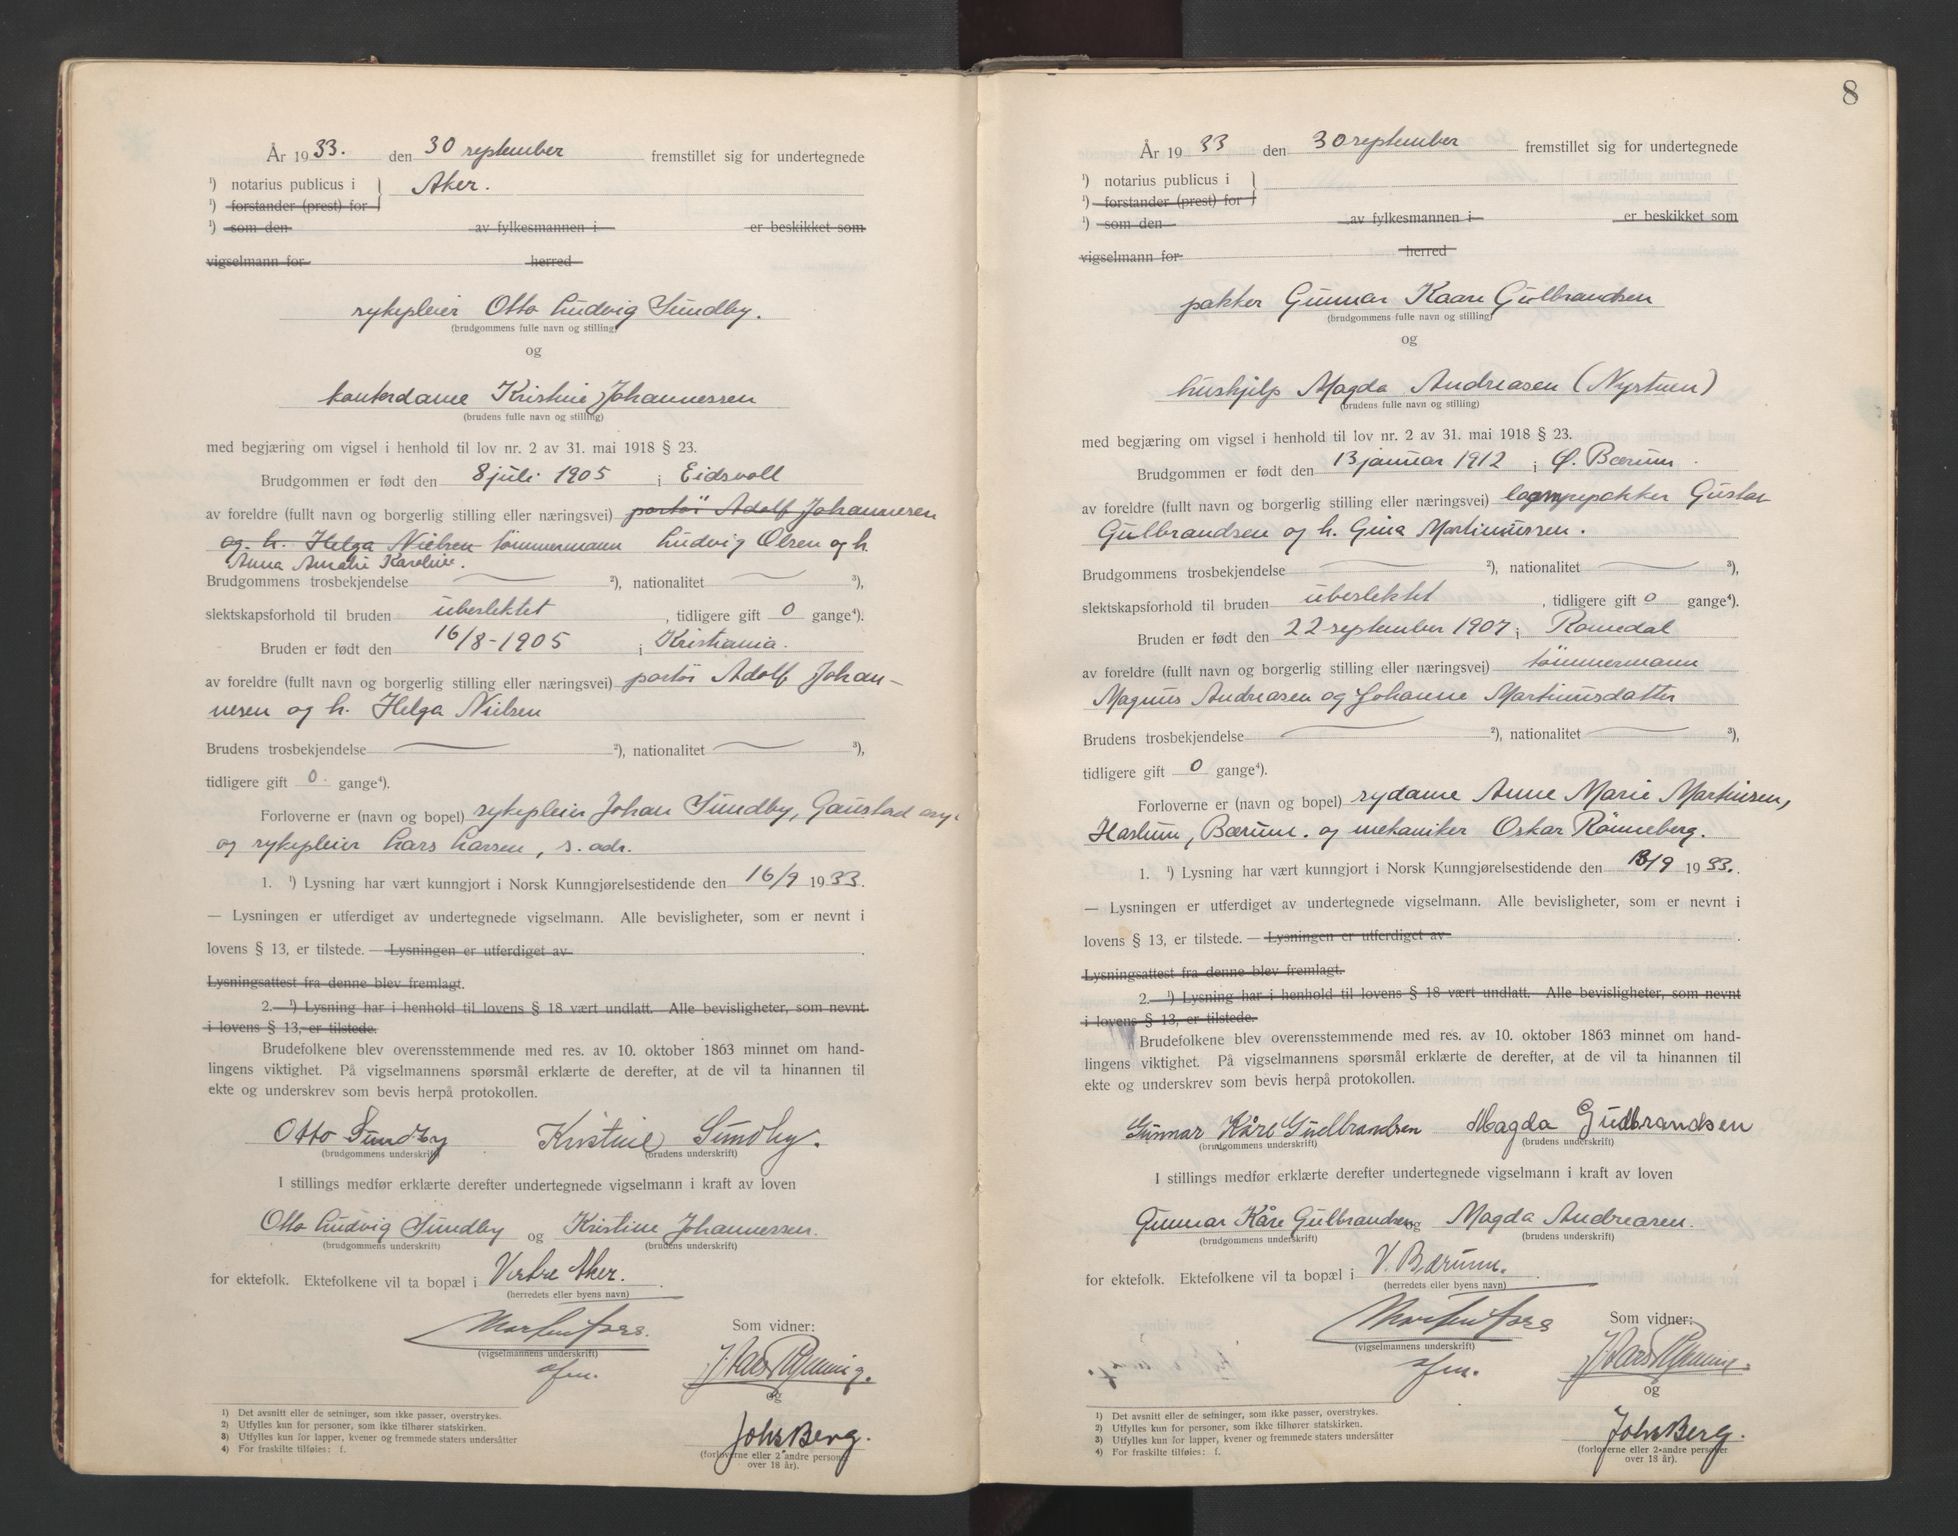 År 1933. den 30 september fremstillet sig for undertegnede
¹) notarius publicus i } Aker.
¹) forstander (prest) for }
¹) som den av fylkesmannen i er beskikket som
vigselmann for herred
sykepleier Otto Ludvig Sundby.
(brudgommens fulle navn og stilling)
og
kontordame Kristine Johannessen
(brudens fulle navn og stilling)
med begjæring om vigsel i henhold til lov nr. 2 av 31. mai 1918 § 23.
Brudgommen er født den 8 juli 1905 i Eidsvoll
av foreldre (fullt navn og borgerlig stilling eller næringsvei) portør Adolf Johannesen
og h. Helga Nielsen tømmermann Ludvig Olsen og h.
Anna Amalie Karoline.
Brudgommens trosbekjendelse ²), nationalitet ³),
slektskapsforhold til bruden ubeslektet, tidligere gift 0 gange⁴).
Bruden er født den 16/8-1905 i Kristiania.
av foreldre (fullt navn og borgerlig stilling eller næringsvei) portør Adolf Johan-
nesen og h. Helga Nielsen
Brudens trosbekjendelse ²), nationalitet ³),
tidligere gift 0. gange⁴).
Forloverne er (navn og bopel) sykepleier Johan Sundby, Gaustad asyl
og sykepleier Lars Larsen, s. adr.
1. ¹) Lysning har vært kunngjort i Norsk Kunngjørelsestidende den 16/9 1933.
— Lysningen er utferdiget av undertegnede vigselmann. Alle bevisligheter, som er nevnt i
lovens § 13, er tilstede. — Lysningen er utferdiget av
Lysningsattest fra denne blev fremlagt.
2. ¹) Lysning har i henhold til lovens § 18 vært undlatt. Alle bevisligheter, som nevnt
i lovens § 13, er tilstede.
Brudefolkene blev overensstemmende med res. av 10. oktober 1863 minnet om hand-
lingens viktighet. På vigselmannens spørsmål erklærte de derefter, at de vil ta hinannen til
ekte og underskrev som bevis herpå protokollen.
Otto Sundby Kristine Sundby.
(brudgommens underskrift) (brudens underskrift)
I stillings medfør erklærte derefter undertegnede vigselmann i kraft av loven
Otto Ludvig Sundby og Kristine Johannessen.
(brudgommens underskrift) (brudens underskrift)
for ektefolk. Ektefolkene vil ta bopæl i Vestre Aker.
(herredets eller byens navn)
Som vidner:
(vigselmannens underskrift)
og
Johs Berg.
(forloverne eller 2 andre personer
over 18 år).
1) Det avsnitt eller de setninger, som ikke passer, overstrykes.
2) Utfylles kun for personer, som ikke tilhører statskirken.
3) Utfylles kun for lapper, kvener og fremmede staters undersåtter
4) For fraskilte tilføies: f.
8
År 1933 den 30 september fremstillet sig for undertegnede
¹) notarius publicus i }
¹) forstander (prest) for }
¹) som den av fylkesmannen i er beskikket som
vigselmann for herred
pakker Gunnar Kaare Gulbrandsen
(brudgommens fulle navn og stilling)
og
hushjelp Magda Andreasen (Nystuen)
(brudens fulle navn og stilling)
med begjæring om vigsel i henhold til lov nr. 2 av 31. mai 1918 § 23.
Brudgommen er født den 13 januar 1912 i Ø. Bærum.
av foreldre (fullt navn og borgerlig stilling eller næringsvei) Gustav
Gulbrandsen og h. Gina Martinussen.
Brudgommens trosbekjendelse ²), nationalitet ³),
slektskapsforhold til bruden ubeslektet, tidligere gift 0 gange⁴).
Bruden er født den 22 september 1907 i Romedal
av foreldre (fullt navn og borgerlig stilling eller næringsvei) tømmermann
Magnus Andreasen og Johanne Martinusdatter
Brudens trosbekjendelse ²), nationalitet ³),
tidligere gift 0 gange⁴).
Forloverne er (navn og bopel) sydame Anne Marie Martinsen,
Haslum, Bærum. og mekaniker Oskar Rønneberg.
1. ¹) Lysning har vært kunngjort i Norsk Kunngjørelsestidende den 1933.
— Lysningen er utferdiget av undertegnede vigselmann. Alle bevisligheter, som er nevnt i
lovens § 13, er tilstede. — Lysningen er utferdiget av
Lysningsattest fra denne blev fremlagt.
2. ¹) Lysning har i henhold til lovens § 18 vært undlatt. Alle bevisligheter, som nevnt
i lovens § 13, er tilstede.
Brudefolkene blev overensstemmende med res. av 10. oktober 1863 minnet om hand-
lingens viktighet. På vigselmannens spørsmål erklærte de derefter, at de vil ta hinannen til
ekte og underskrev som bevis herpå protokollen.
Gunnar Kåre Gudbrandsen Magda Gudbrandsen
(brudgommens underskrift) (brudens underskrift)
I stillings medfør erklærte derefter undertegnede vigselmann i kraft av loven
Gunnar Kåre Gulbrandsen og Magda Andreasen.
(brudgommens underskrift) (brudens underskrift)
for ektefolk. Ektefolkene vil ta bopæl i V. Bærum.
(herredets eller byens navn)
Som vidner:
(vigselmannens underskrift)
og
Johs Berg.
(forloverne eller 2 andre personer
over 18 år).
1) Det avsnitt eller de setninger, som ikke passer, overstrykes.
2) Utfylles kun for personer, som ikke tilhører statskirken.
3) Utfylles kun for lapper, kvener og fremmede staters undersåtter
4) For fraskilte tilføies: f.